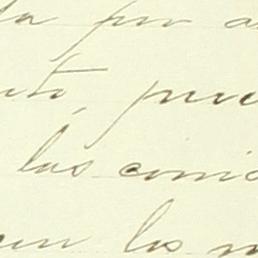 da por a
nto, pue
las comi
en los m